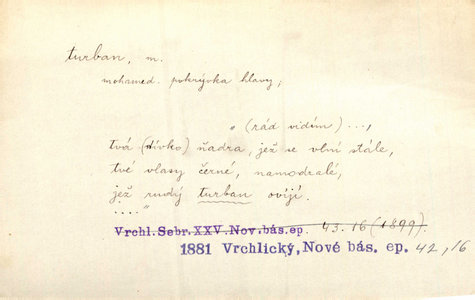 turban, m.
mohamed. pokrývka hlavy;
„(rád vidím) ...,
tvá (dívko) ňadra, jež se vlní stále,
tvé vlasy černé, namodralé,
jež rudý turban ovíjí.
....“
Vrchl. Sebr. XXV. Nov. bás. ep. 43.16 (1899)
1881 Vrchlický, Nové bás. ep. 42, 16